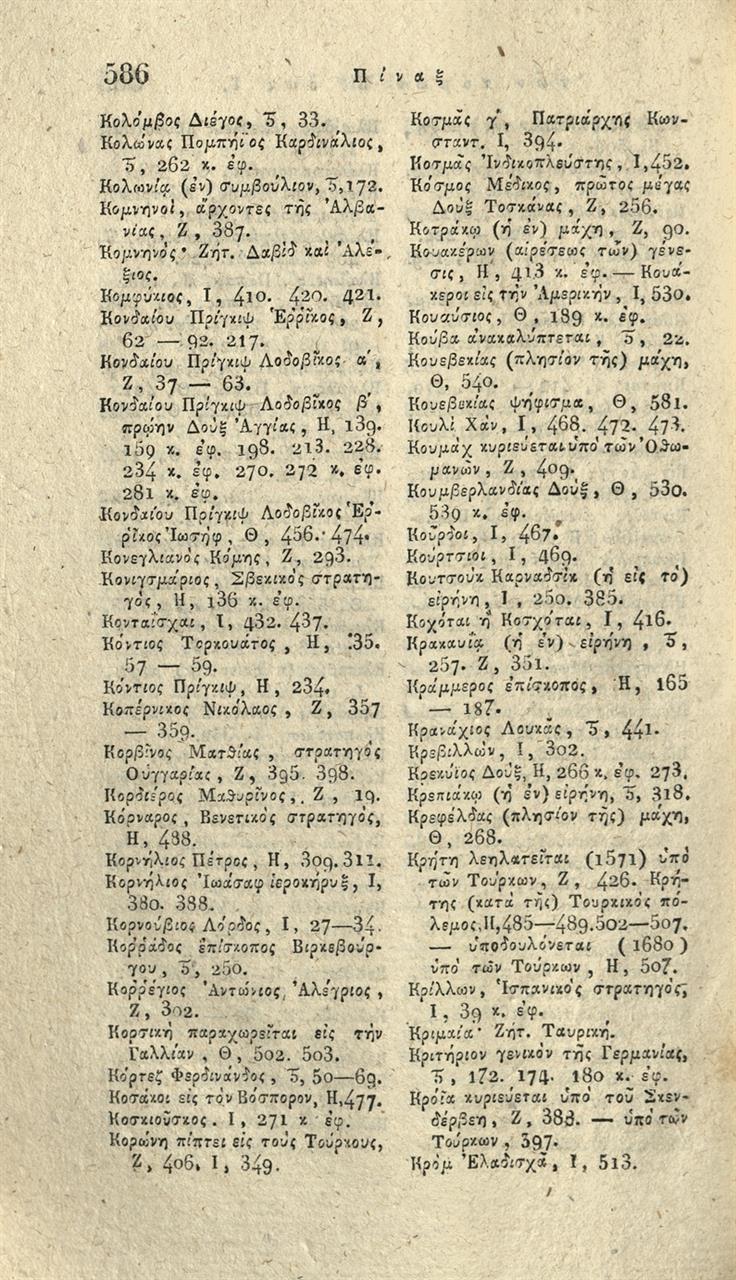 586
Πίναξ
Κολόμβος Διέγος, Ϛ, 33.
Κολώνας Πομπήϊος Καρδινάλιος,
Ϛ, 262 κ. ἐφ.
Κολωνίᾳ (ἐν) συμβούλιον, Ϛ, 172.
Κομνηνοὶ, ἄρχοντες τῆς Ἀλβα-
νίας, Ζ, 387.
Κομνηνός· Ζήτ. Δαβὶδ καὶ Ἀλέ-
ξιος.
Κομφύκιος, Ι, 410. 420. 421.
Κονδαίου Πρίγκιψ Ἐῤῥῖκος, Ζ,
62 — 92. 217.
Κονδαίου Πρίγκιψ Λοδοβῖκος α΄,
Ζ, 37 — 63.
Κονδαίου Πρίγκιψ Λοδοβῖκος β΄,
πρῴην Δοὺξ Ἀγγίας, Η, 139.
159 κ. ἐφ. 198. 213. 228.
234 κ. ἐφ. 270. 272 κ. ἐφ.
281 κ. ἐφ.
Κονδαίου Πρίγκιψ Λοδοβῖκος Ἐῤ-
ῥῖκος Ἰωσὴφ, Θ, 456. 474.
Κονεγλιανὸς Κόμης, Ζ, 293.
Κονιγσμάριος, Σβεκικὸς στρατη-
γὸς, Η, 136 κ. ἐφ.
Κονταΐσχαι, Ι, 432. 437.
Κόντιος Τορκουάτος, Η, 35.
57 — 59.
Κόντιος Πρίγκιψ, Η, 234.
Κοπέρνικος Νικόλαος, Ζ, 357
— 359.
Κορβῖνος Ματθίας, στρατηγὸς
Οὑγγαρίας, Ζ, 395. 398.
Κορδιέρος Μαθυρῖνος, Ζ, 19.
Κόρναρος, Βενετικὸς στρατηγὸς,
Η, 488.
Κορνήλιος Πέτρος, Η, 309. 311.
Κορνήλιος Ἰωάσαφ ἱεροκήρυξ, Ι,
380. 388.
Κορνούβιος Λόρδος, Ι, 27—34.
Κοῤῥάδος ἐπίσκοπος Βιρκεβούρ-
γου, Ϛ, 250.
Κοῤῥέγιος Ἀντώνιος Ἀλέγριος,
Ζ, 302.
Κορσικὴ παραχωρεῖται εἰς τὴν
Γαλλίαν, Θ, 502. 503.
Κόρτεζ Φερδινάνδος, Ϛ, 50—69.
Κοσάκοι εἰς τὸν Βόσπορον, Η, 477.
Κοσκιοῦσκος. Ι, 271 κ ἐφ.
Κορώνη πίπτει εἰς τοὺς Τούρκους,
Ζ, 406. Ι, 349.
Κοσμᾶς γ΄, Πατριάρχης Κων-
σταντ. Ι, 394.
Κοσμᾶς Ἰνδικοπλεύστης, Ι, 452.
Κόσμος Μέδικος, πρῶτος μέγας
Δοὺξ Τοσκάνας, Ζ, 256.
Κοτράκῳ (ἡ ἐν) μάχη, Ζ, 90.
Κουακέρων (αἱρέσεως τῶν) γένε-
σις, Η, 413 κ. ἐφ. — Κουά-
κεροι εἰς τὴν Ἀμερικὴν, Ι, 530.
Κουαύσιος, Θ, 189 κ. ἐφ.
Κούβα ἀνακαλύπτεται, Ϛ, 22.
Κουεβεκίας (πλησίον τῆς) μάχη,
Θ, 540.
Κουεβεκίας ψήφισμα, Θ, 581.
Κουλὶ Χὰν, Ι, 468. 472. 473.
Κουμὰχ κυριεύεται ὑπὸ τῶν Ὀθω-
μανῶν, Ζ, 409.
Κουμβερλανδίας Δοὺξ, Θ, 530.
539 κ. ἐφ.
Κοῦρδοι, Ι, 467.
Κούρτσιοι, Ι, 469.
Κουτσοὺκ Καρναδσὶκ (ἡ εἰς τὸ)
εἰρήνη, Ι, 250. 385.
Κοχόται ἢ Κοσχόται, Ι, 416.
Κρακαυΐᾳ (ἡ ἐν) εἰρήνη, Ϛ,
257. Ζ, 351.
Κράμμερος ἐπίσκοπος, Η, 165
— 187.
Κρανάχιος Λουκᾶς, Ϛ, 441.
Κρεβιλλὼν, Ι, 302.
Κρεκυῖος Δοὺξ, Η, 266 κ. ἐφ. 273.
Κρεπιάκῳ (ἡ ἐν) εἰρήνη, Ϛ, 318.
Κρεφέλδας (πλησίον τῆς) μάχη,
Θ, 268.
Κρήτη λεηλατεῖται (1571) ὑπὸ
τῶν Τούρκων, Ζ, 426. Κρή-
της (κατὰ τῆς) Τουρκικὸς πό-
λεμος, Η, 485—489. 502—507.
— ὑποδουλόνεται (1680)
ὑπὸ τῶν Τούρκων, Η, 507.
Κρίλλων, Ἱσπανικὸς στρατηγὸς,
Ι, 39 κ. ἐφ.
Κριμαία· Ζήτ. Ταυρική.
Κριτήριον γενικὸν τῆς Γερμανίας,
Ϛ, 172. 174. 180 κ. ἐφ.
Κροΐα κυριεύεται ὑπὸ τοῦ Σκεν-
δέρβεη, Ζ, 388. — ὑπὸ τῶν
Τούρκων, 397.
Κρὸμ Ἐλαδισχᾶ, Ι, 513.